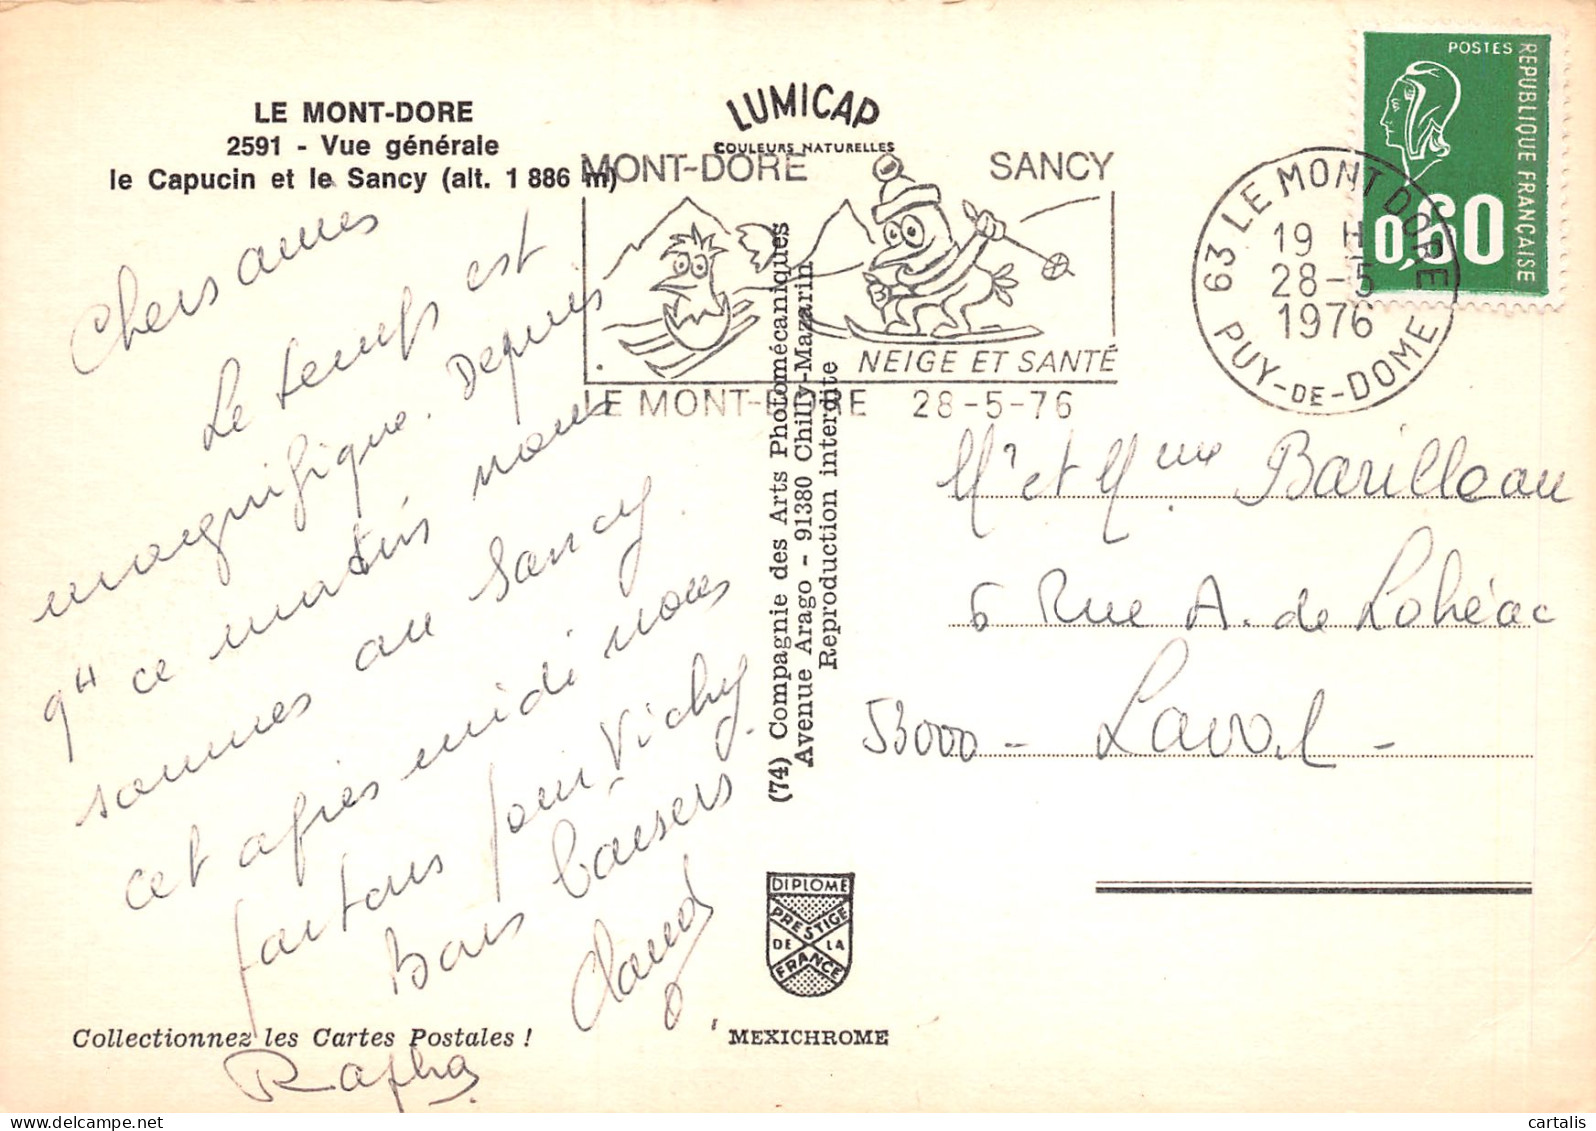 LE MONT-DORE
2591 - Vue générale
le Capucin et le Sancy (alt. 1 886 m)
LUMICAP
COULEURS NATURELLES
MONT-DORE SANCY
NEIGE ET SANTÉ
LE MONT-DORE 28-5-76
63 LE MONT DORE
19 H
28-5
1976
PUY-DE-DOME
POSTES
REPUBLIQUE FRANÇAISE
0,60
Chers amis
Le temps est
magnifique. Depuis
ce matin nous
sommes au Sancy.
cet après midi nous
partons pour Vichy.
Bons baisers
Rapha
Mr et Mme Barilleau
6 Rue A. de Lohéac
53000 - Laval -
(74) Compagnie des Arts Photomécaniques
Avenue Arago - 91380 Chilly-Mazarin
Reproduction interdite
DIPLOME
PRESTIGE
DE LA
FRANCE
Collectionnez les Cartes Postales !
MEXICHROME
cartalis
www.delcampe.net